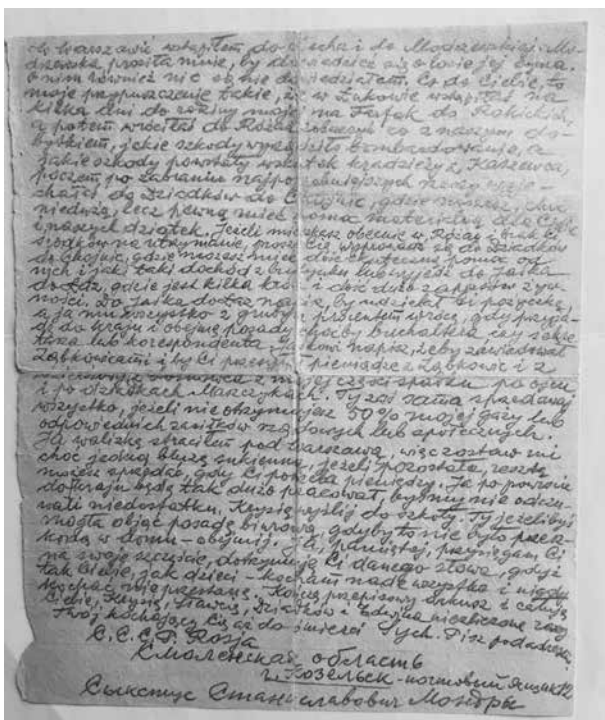 W Warszawie wstąpiłem do i do Modrzewskiej. Mo-
drzewska prosiła mnie, by się o losie jej syna.
O nim również nic się nie dowiedziałem. Co do Ciebie, to
moje przypuszczenie takie, że w Łukowie wstąpiłaś na
kilka dni do rodziny mojej na do
a potem wróciłaś do Różan zobaczyć co z naszym do-
bytkiem, jakie szkody wyrządziło bombardowanie, a
jakie szkody powstały wskutek kradzieży z
poczem, po zabraniu rzeczy wyje-
chałaś do Dziadków do gdzie musisz, choć
niedużą, lecz pewną mieć pomoc materialną dla Ciebie
i naszych dziatek. Jeżeli mieszkasz obecnie w Różan i brak Ci
środków na utrzymanie, proszę Cię, wyprowadź się do Dziadków
do gdzie musisz mieć dość skuteczną pomoc od
nych i jaki taki dochód z budynku lub wyjedź do Jaśka
do gdzie jest kilka krów i dość dużo zapasów żyw-
ności. Do Jaśka napisz, by udzielał Ci pożyczek,
a ja mu wszystko z grubym procentem wrócę, gdy przyja-
dę do kraju i obejmę posadę choćby buchaltera, czy sekre-
tarza lub korespondenta. Jaśkowi napisz, żeby zawiadował
Ząbkowicami i by Ci przesyłał pieniądze z Ząbkowic i z
z mojej części spadku po ojcu
i po dziadkach Marczykach. Ty zaś sama sprzedawaj
wszystko, jeżeli nie otrzymujesz 50% mojej gaży lub
odpowiednich zasiłków rządowych lub społecznych.
Ja walizkę straciłem pod Warszawą, więc zostaw mi
choć jedną bluzę sukienną, jeżeli pozostała, resztę
możesz sprzedać, gdy Ci potrzeba pieniędzy. Ja po powrocie
do kraju będę tak dużo pracował, byśmy nie odczu-
wali niedostatku. Krysię wyślij do szkoły. Ty jeżelibyś
mogła objąć posadę biurową, gdyby to nie było przesz-
kodą w domu – obejmij. Ja, pamiętaj, przysięgam Ci
na swoje szczęście, dotrzymuję Ci danego słowa, gdyż
tak Ciebie, jak dzieci – kocham nade wszystko i nigdy
kochać nie przestanę. Kończę przepisowy arkusz i całuję
Ciebie, Krysię, Sławcię, Dziadków i Edwina niezliczone razy
Twój kochający Cię aż do śmierci Sych. Pisz pod adresem:
С.С.С.Р. Rosja
Смоленская область
г. Козельск – почтовый ящик 12
Сыкстус Станиславович Мондры